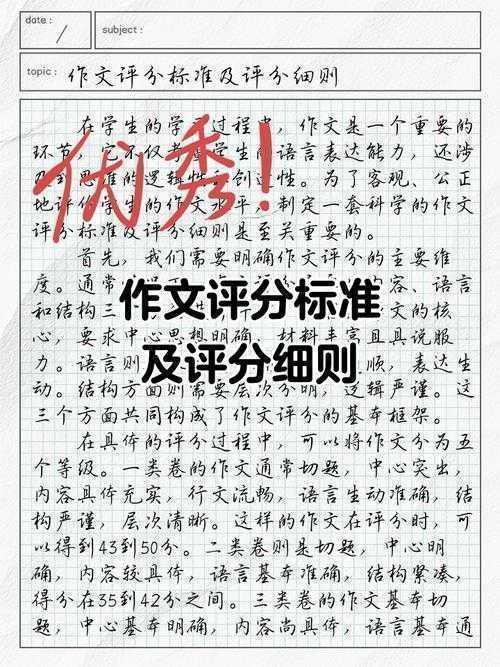 date: /
subject:
topic: 作文评分标准及评分细则
优秀!
在学生的学习过程中，作文是一个重要的
环节，它不仅考 学生的语言表达能力，还涉
及到思维的逻辑性 创造性。为了客观、公正
地评价学生的作文水平，制定一套科学的作文
评分标准及评分细则是至关重要的。
首先，我们需要明确作文评分的主要维
度。通常 容、语言
和结构三 文的核
心，要求中心思想明确、材料丰富且具说服
力。语言则 顺，表达生
动。结构方面则需要层次分明，逻辑严谨。这
三个方面共同构成了作文评分的基本框架。
作文评分标准
及评分细则
在具体的评分过程中，可以将作文分为五
个等级。一类卷的作文通常切题，中心突出，
内容具体充实，行文流畅，语言生动准确，结
构严谨，层次清晰。这样的作文在评分时，可
以得到43到50分。二类卷则是切题，中心明
确，内容较具体，语言基本准确，结构紧凑，
得分在35到42分之间。三类卷的作文基本切
题，中心基本明确，内容尚具体，语言基本通